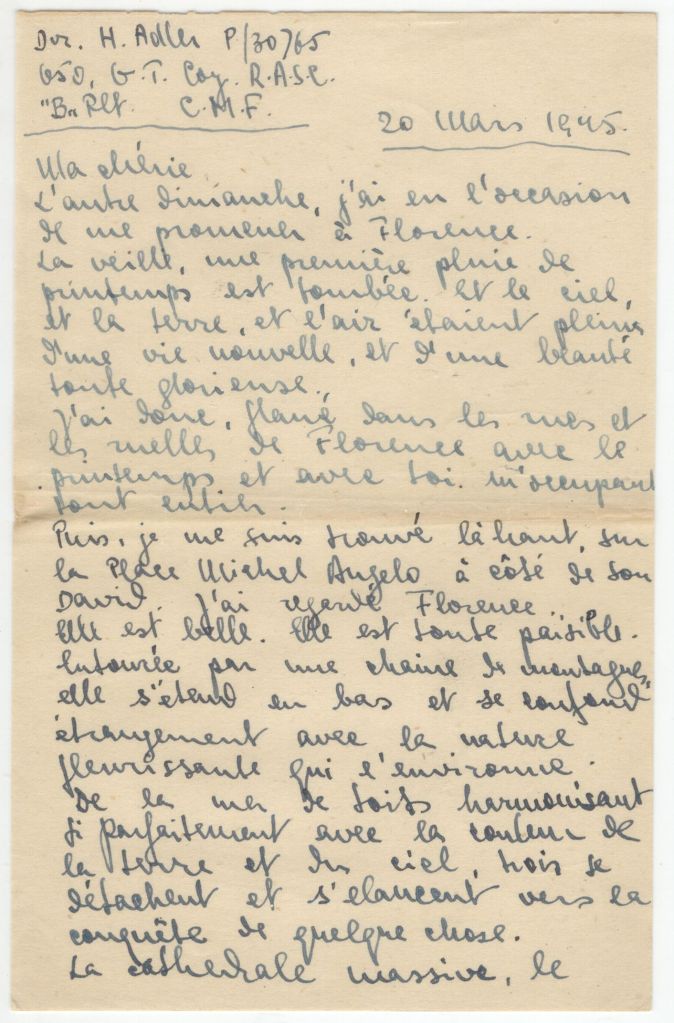 Dvr. H. Adler P/30765
650, G.T. Coy. R.A.S.C.
"B" Plt. C.M.F.
20 Mars 1945.
Ma chérie
L'autre dimanche, j'ai eu l'occasion
de me promener à Florence.
La veille, une première pluie de
printemps est tombée. Et le ciel,
et la terre, et l'air étaient pleins
d'une vie nouvelle, et d'une beauté
toute glorieuse.
J'ai donc, flané dans les rues et
les ruelles de Florence avec le
printemps et avec toi m'occupant
tout entier.
Puis, je me suis trouvé là haut, sur
la Place Michel Angelo à côté de son
David. J'ai regardé Florence.
Elle est belle. Elle est toute paisible.
Entourée par une chaine de montagnes,
elle s'étend en bas et se confond
étrangement avec la nature
fleurissante qui l'environne.
De la mer de toits harmonisant
si parfaitement avec la couleur de
la terre et du ciel, trois se
détachent et s'élancent vers la
conquête de quelque chose.
La cathédrale massive, le